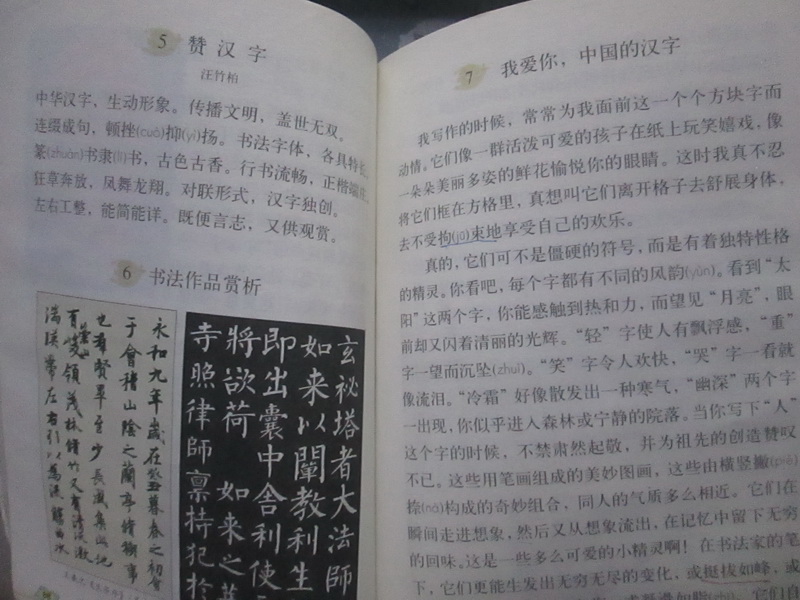 5 赞汉字
汪竹柏
中华汉字，生动形象。传播文明，盖世无双。
连缀成句，顿挫(cuò)抑(yì)扬。书法字体，各具特长。
篆(zhuàn)书隶(lì)书，古色古香。行书流畅，正楷端庄。
狂草奔放，凤舞龙翔。对联形式，汉字独创。
左右工整，能简能详。既便言志，又供观赏。
6 书法作品赏析
永和九年岁在癸丑暮春之初會
于會稽山陰之蘭亭脩禊事
也羣賢畢至少長咸集此地
有峻領茂林脩竹又有清流激
湍暎帶左右引以為流觴曲水
玄秘塔者大法師
如来以闡教利生
即出囊中舍利使
將欲荷 如来之
寺照律師稟持犯於
7 我爱你，中国的汉字
我写作的时候，常常为我面前这一个个方块字而
动情。它们像一群活泼可爱的孩子在纸上玩笑嬉戏，像
一朵朵美丽多姿的鲜花愉悦你的眼睛。这时我真不忍
将它们框在方格里，真想叫它们离开格子去舒展身体，
去不受拘(jū)束地享受自己的欢乐。
真的，它们可不是僵硬的符号，而是有着独特性格
的精灵。你看吧，每个字都有不同的风韵(yùn)。看到“太
阳”这两个字，你能感触到热和力，而望见“月亮”，眼
前却又闪着清丽的光辉。“轻”字使人有飘浮感，“重”
字一望而沉坠(zhuì)。“笑”字令人欢快，“哭”字一看就
像流泪。“冷霜”好像散发出一种寒气，“幽深”两个字
一出现，你似乎进入森林或宁静的院落。当你写下“人”
这个字的时候，不禁肃然起敬，并为祖先的创造赞叹
不已。这些用笔画组成的美妙图画，这些由横竖撇(piě)
捺(nà)构成的奇妙组合，同人的气质多么相近。它们在
瞬间走进想象，然后又从想象流出，在记忆中留下无穷
的回味。这是一些多么可爱的小精灵啊！在书法家的笔
下，它们更能生发出无穷无尽的变化，或挺拔如峰，或